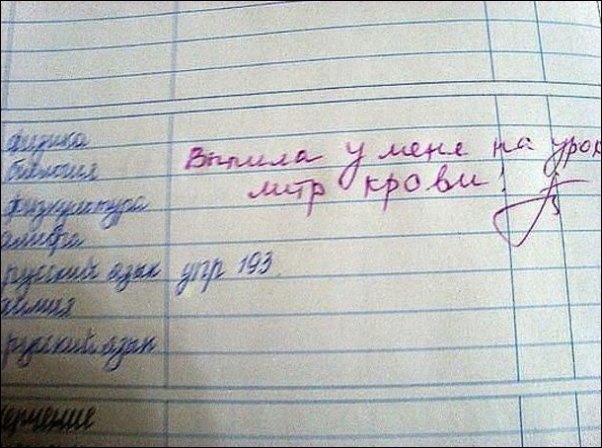 физика
биология Выпила у мене на урок
физкультура литр крови!
алгебра
русский язык упр 193.
химия
русский язык
черчение